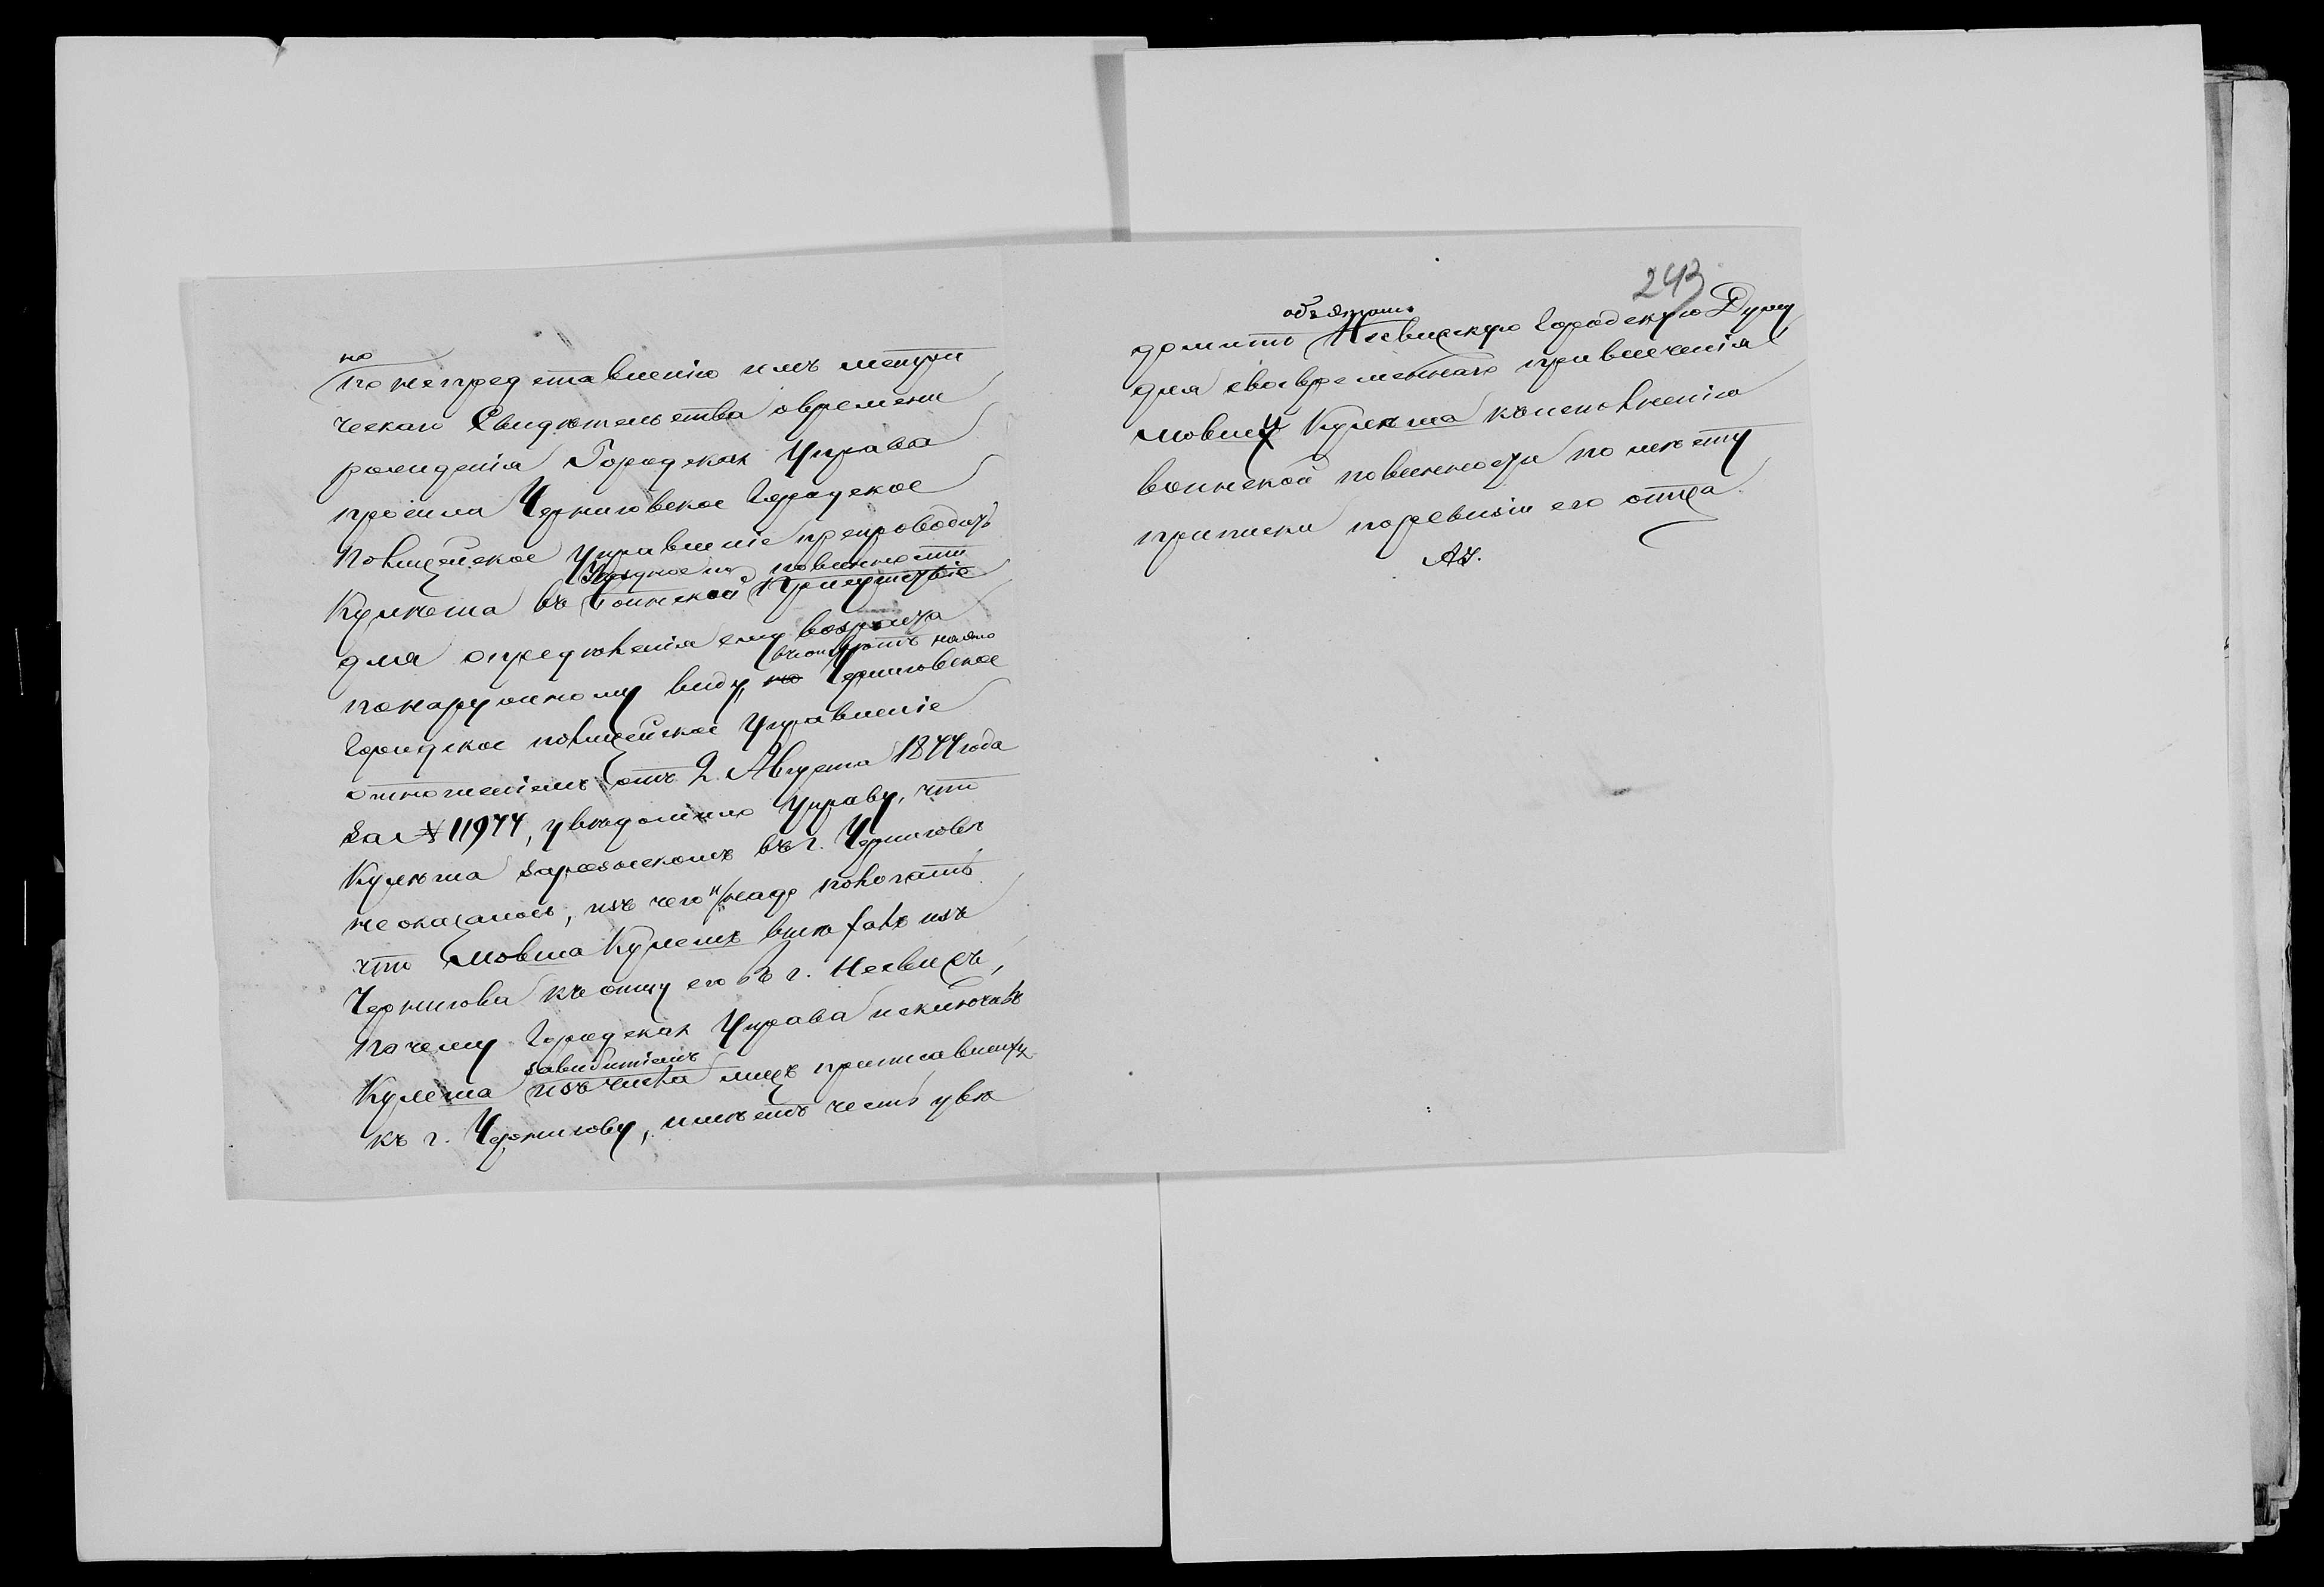 но
по непредставленію имъ метри
ческаго Свидѣтельства о времени
рожденія Городская Управа
просила Черниговское Городское
Полицейское Управленіе препроводить
Уѣздное по повинности
Кулѣша въ Воинской Присутствіе
для опредѣленія ему возраста
по наружному виду, но Черниговское
Городское полицейское Управленіе
отношеніемъ отъ 2 Августа 1877 года
за № 11977, увѣдомило Управу, что
Кулѣша въ г. Черниговѣ
не оказалось, изъ чего и надо пологать
что Мовша Кулешъ выѣхалъ изъ
Чернигова къ отцу его въ г. Несвижъ,
почему Городская Управа исключивъ
Кулеша изъ числа лицъ приписавшихся
къ г. Чернигову, имѣетъ честь увѣ
243
объ этомъ
домить Несвижскую Городскую Думу
для своевременнаго привлеченія
Мовши Кулѣша къ исполненію
воинской повинности по мѣсту
приписки по ревизіи его отца.